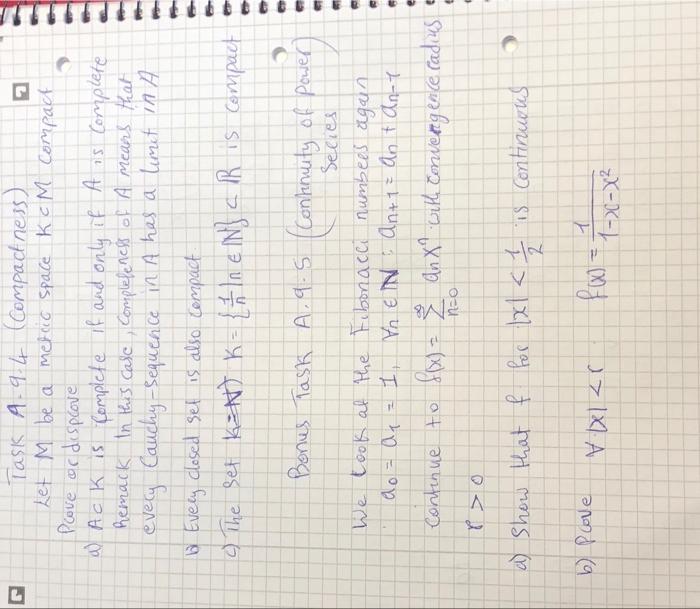 Task A.9.4 (Compactness)
Let M be a metric space K⊂M Compact
Prove or disprove
a) A⊂K is Complete if and only if A is Complete
Remark In this case, completeness of A means that
every Cauchy-sequence in A has a limit in A
b) Every closed set is also compact
c) The set K = {1/n | n ∈ ℕ} ⊂ ℝ is compact
Bonus Task A.9.5 (Continuity of Power
Series)
We look at the Fibonacci numbers again
a₀ = a₁ = 1, ∀n ∈ ℕ : aₙ₊₁ = aₙ + aₙ₋₁
Continue to f(x) = ∑_{n=0}^{∞} aₙxⁿ with convergence radius
r > 0
a) Show that f for |x| < 1/2 is continuous
b) Prove ∀ |x| < r f(x) = 1/(1-x-x²)